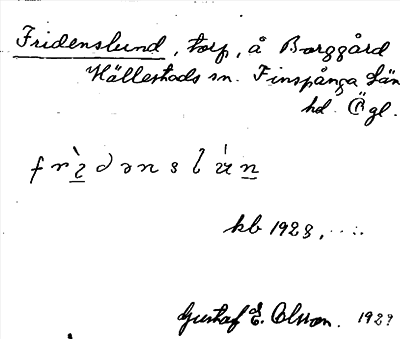 Fridenslund, torp, å Borggård
Hällestads sn. Finspånga län
hd. Ögl.
frìdənslún
kb 1923, ....
Gustaf E. Olsson. 1929